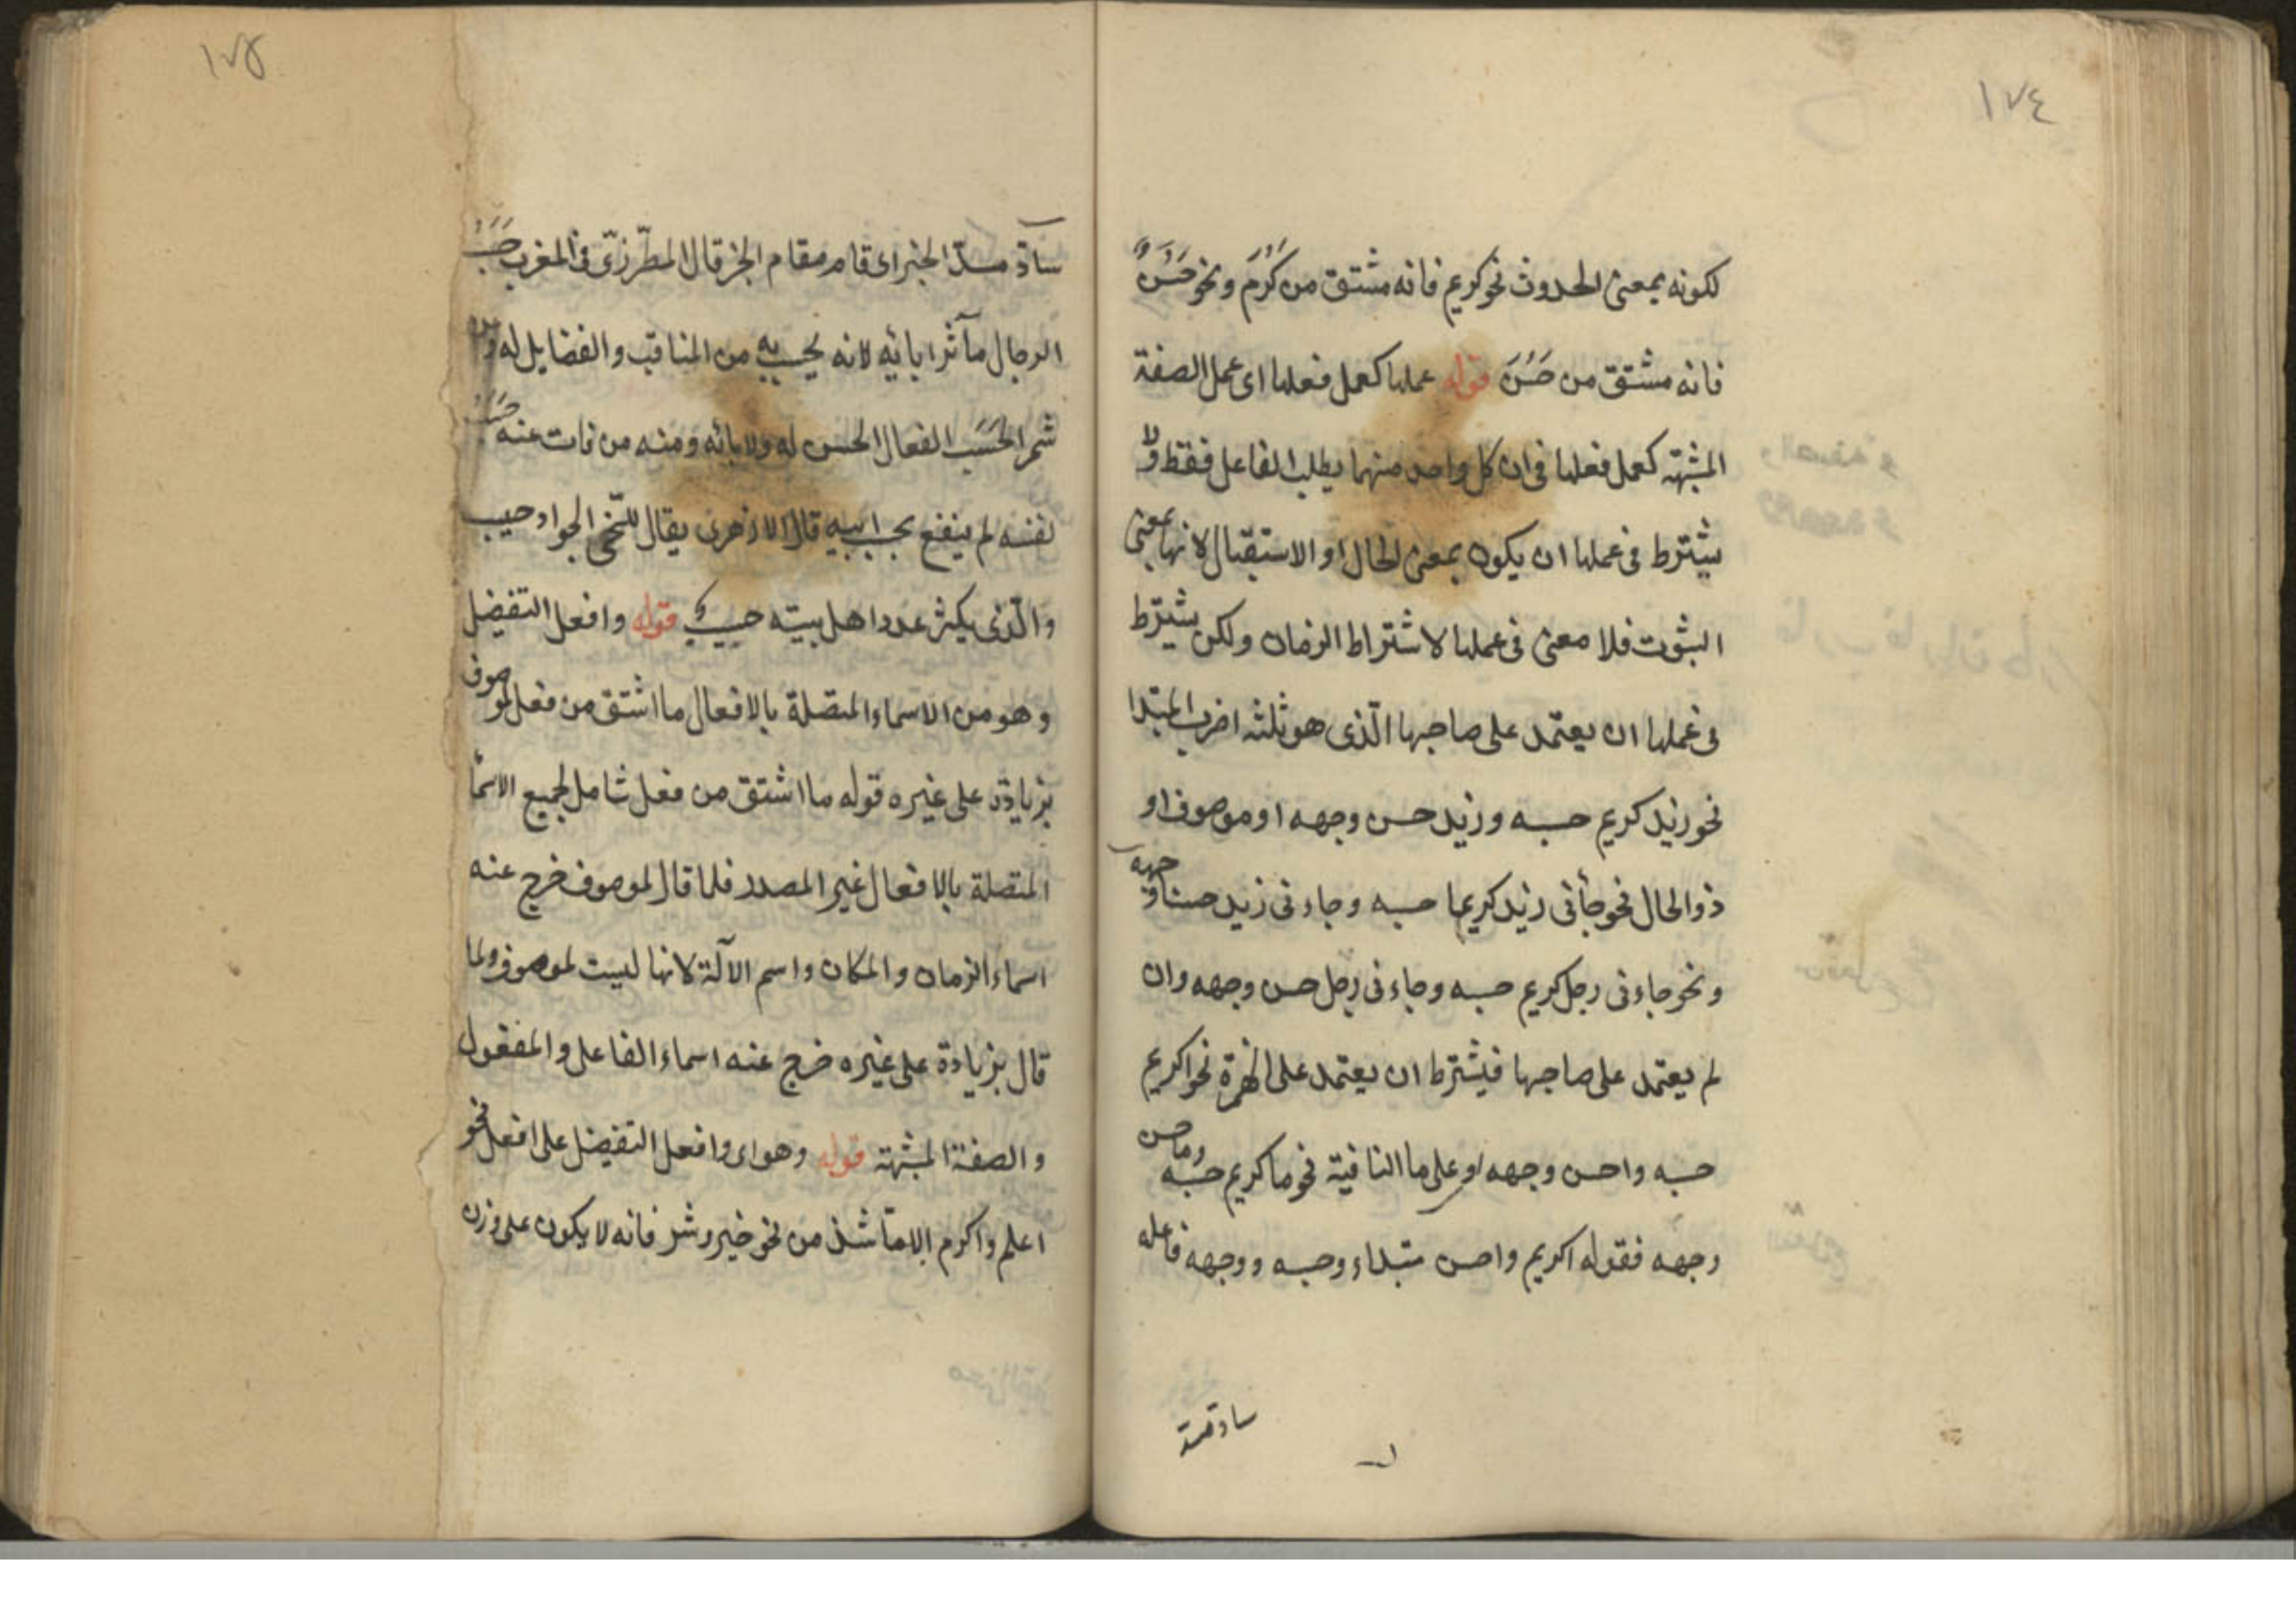 ١٧٤
لكونه بمعنى الحدوث نحو كريم فانه مشتق من كَرُمَ ونحو حَسَنٌ
فانه مشتق من حَسُنَ قوله عملها كعمل فعلها اى عمل الصفة
المشبهة كعمل فعلها فى ان كل واحد منهما يطلب الفاعل فقط ولا
يشترط فى عملها ان يكون بمعنى الحال او الاستقبال لانها بمعنى
الثبوت فلا معنى فى عملها لاشتراط الزمان ولكن يشترط
فى عملها ان يعتمد على صاحبها الّذى هو ثلثه اضرب المبتدا
نحو زيد كريم حسبه وزيد حسن وجهه او موصوف او
ذو الحال نحو جأنى زيد كريما حسبه وجاءنى زيد حسنا وجهه
ونحو جاءنى رجل كريم حسبه وجاءنى رجل حسن وجهه وان
لم يعتمد على صاحبها فيشترط ان يعتمد على الهمزة نحو اكريم
حسبه واحسن وجهه او على ما النافية نحو ما كريم حسبه وما حسن
وجهه فقوله اكريم واحسن مبتداء وحسبه ووجهه فاعله
ساد مسد
١٧٥
سادّ مسدّ الخبر اى قام مقام الخبر قال المطرّزىّ فى المغرب حَسَبُ
الرجال مآثر ابائه لانه يحسب به من المناقب والفضايل له وعن
شمر الحَسَب الفعال الحسن له ولابائه ومنه من فات عنه حَسَبُ
نفسه لم ينفع بحسب ابيه قال الازهرى يقال للسّخى الجواد حسيب
والّذى يكثر عدد اهل بيته حسيب قوله وافعل التفضيل
وهو من الاسماء المتصلة بالافعال ما اشتق من فعل لموصوف
بزيادة على غيره قوله ما اشتق من فعل شامل لجميع الاسما
المتصلة بالافعال غير المصدر فلما قال لموصوف خرج عنه
اسماء الزمان والمكان واسم الآلة لانها ليست لموصوف ولما
قال بزيادة على غيره خرج عنه اسماء الفاعل والمفعول
والصفة المشبهة قوله وهو اى وافعل التفضيل على افعل نحو
اعلم واكرم الا ما شذ من نحو خير وشر فانه لا يكون على وزن